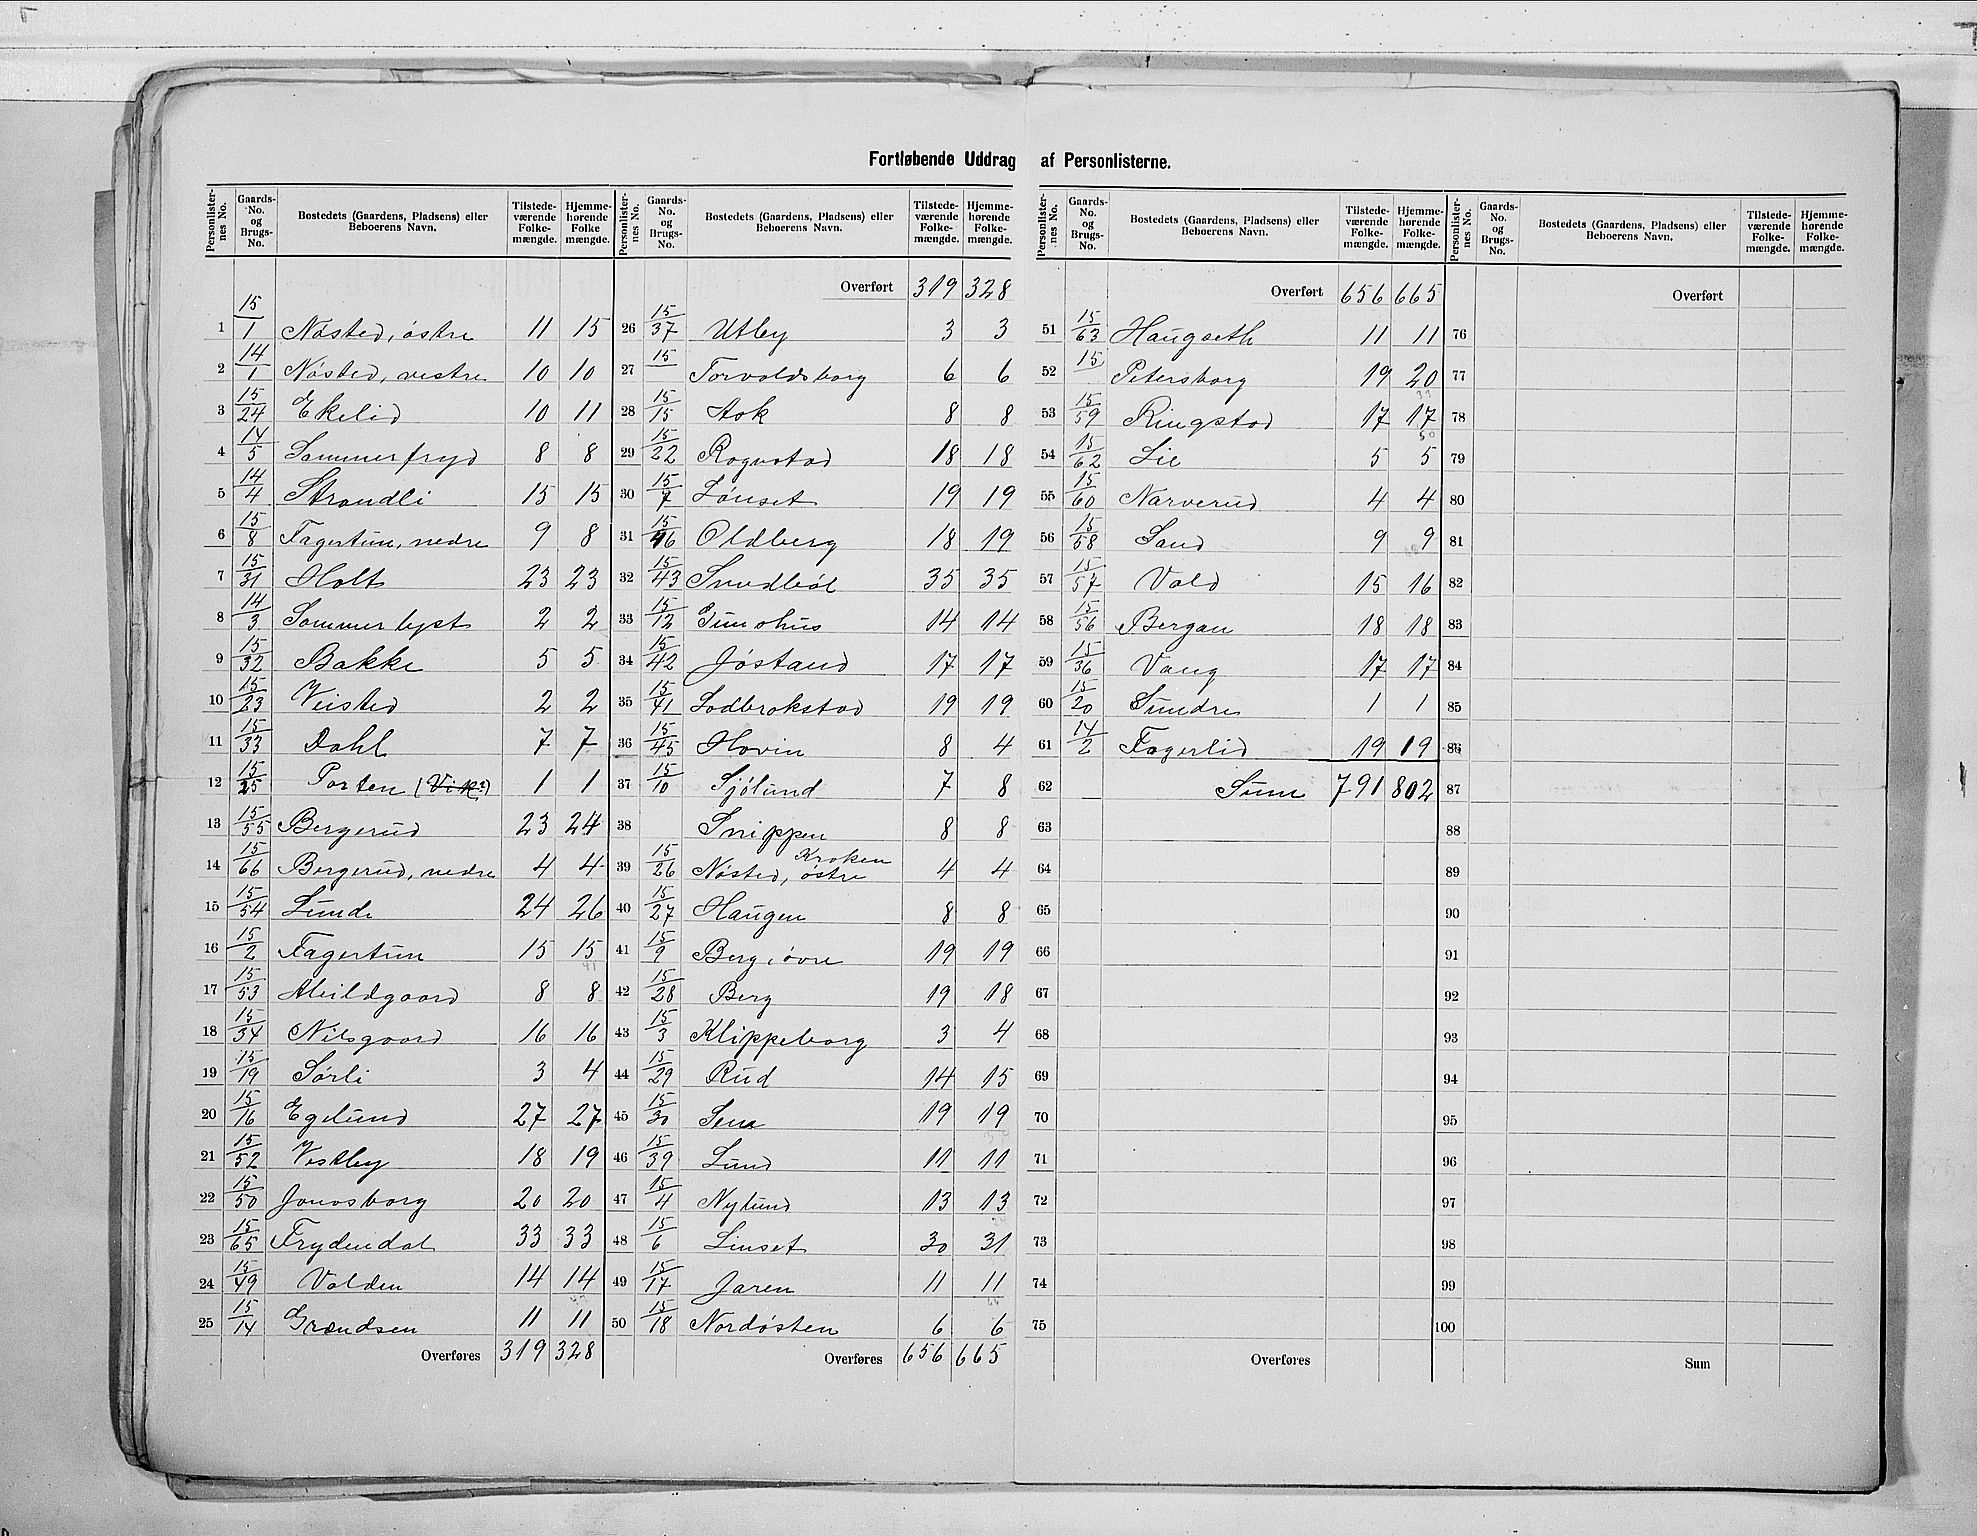 Fortløbende Uddrag af Personlisterne.
Personlisternes No. | Gaards-No. og Brugs-No. | Bostedets (Gaardens, Pladsens) eller Beboerens Navn. | Tilstedeværende Folkemængde. | Hjemmehørende Folkemængde.
1 15/1 Nøsted, østre 11 15
2 14/1 Nøsted, vestre 10 10
3 15/24 Ekelid 10 11
4 14/5 Sommerfryd 8 8
5 14/4 Strandli 15 15
6 15/8 Fagertun, nedre 9 8
7 15/31 Holt 23 23
8 14/3 Sommerlyst 2 2
9 15/32 Bakke 5 5
10 15/23 Veisted 2 2
11 15/33 Dahl 7 7
12 15/25 Porten (Vik) 1 1
13 15/55 Bergerud 23 24
14 15/66 Bergerud, nedre 4 4
15 15/54 Lunde 24 26
16 15/2 Fagertun 15 15
17 15/53 Abildgaard 8 8
18 15/34 Nilsgaard 16 16
19 15/19 Sørli 3 4
20 15/16 Egelund 27 27
21 15/52 Vestby 18 19
22 15/50 Jonasborg 20 20
23 15/65 Frydendal 33 33
24 15/49 Volden 14 14
25 15/14 Grændsen 11 11
Overføres 319 328
Overført 319 328
26 15/37 Utby 3 3
27 15 Torvaldsborg 6 6
28 15/15 Ask 8 8
29 15/22 Rognstad 18 18
30 15/7 Lønset 19 19
31 15/46 Oldberg 18 19
32 15/43 Smedbøl 35 35
33 15/12 Gimohus 14 14
34 15/42 Jøstand 17 17
35 15/41 Lodbrokstad 19 19
36 15/45 Hovin 8 4
37 15/10 Sjølund 7 8
38 Snippen 8 8
39 15/26 Nøsted, østre Kroken 4 4
40 15/27 Haugen 8 8
41 15/9 Berg, øvre 19 19
42 15/28 Berg 19 18
43 15/3 Klippeborg 3 4
44 15/29 Rud 14 15
45 15/30 19 19
46 15/39 Lund 11 11
47 15/4 Nylund 13 13
48 15/6 Linset 30 31
49 15/17 Jaren 11 11
50 15/18 Nordøsten 6 6
Overføres 656 665
Overført 656 665
51 15/63 Haugseth 11 11
52 15 Petersborg 19 20
53 15/59 Ringstad 17 17
54 15/62 Lie 5 5
55 15/60 Narverud 4 4
56 15/58 Sand 9 9
57 15/57 Vold 15 16
58 15/56 Bergan 18 18
59 15/36 Vang 17 17
60 15/20 Sundre 1 1
61 14/2 Fagerlid 19 19
62 Sum 791 802
63
64
65
66
67
68
69
70
71
72
73
74
75
Overføres
Overført
76
77
78
79
80
81
82
83
84
85
86
87
88
89
90
91
92
93
94
95
96
97
98
99
100
Sum